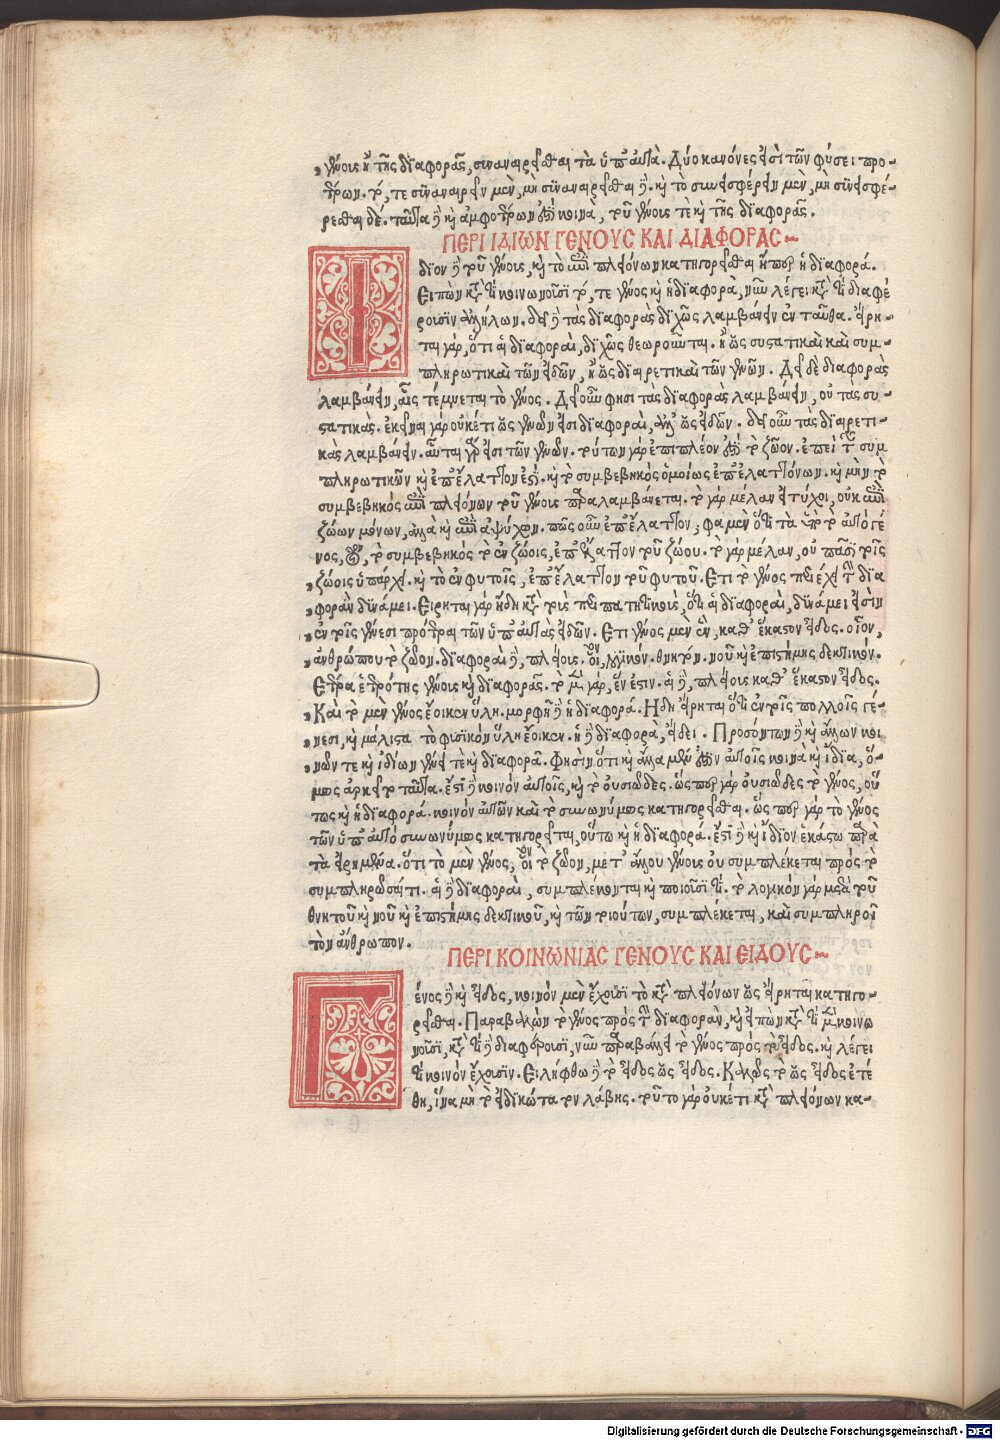 γένους ἢ τῆς διαφορᾶς, συναναιρεῖσθαι τὰ ὑπ' αὐτά. Δύο κανόνες εἰσὶ τῶν φύσει προ-
τέρων. τό, τε συναναιρεῖν μὲν, μὴ συναναιρεῖσθαι δέ. καὶ τὸ συνεισφέρειν μὲν, μὴ συνεισφέ-
ρεσθαι δέ. ταῦτα δὲ καὶ ἀμφοτέρων ἐστὶ κοινὰ, τοῦ γένους τὲ καὶ τῆς διαφορᾶς.
ΠΕΡΙ ΙΔΙΩΝ ΓΕΝΟΥC ΚΑΙ ΔΙΑΦΟΡΑC
Ι
διον δὲ τοῦ γένους, καὶ τὸ ἐπὶ πλειόνων κατηγορεῖσθαι ἤπερ ἡ διαφορά.
Ειπὼν κατὰ τί κοινωνοῦσι τό, τε γένος καὶ ἡ διαφορὰ, νῦν λέγει κατὰ τί διαφέ
ρουσιν ἀλλήλων. δεῖ δὲ τὰς διαφορὰς διχῶς λαμβάνειν ἐνταῦθα. εἴρη-
ται γὰρ, ὅτι αἱ διαφοραὶ, διχῶς θεωροῦνται. ἢ ὡς συστατικαὶ καὶ συμ-
πληρωτικαὶ τῶν εἰδῶν, ἢ ὡς διαιρετικαὶ τῶν γενῶν. Δεῖ δὲ διαφορὰς
λαμβάνειν, αἷς τέμνεται τὸ γένος. Δεῖ οὖν φησι τὰς διαφορὰς λαμβάνειν, οὐ τὰς συ-
στατικάς. ἐκεῖναι γὰρ οὐκέτι ὡς γενῶν εἰσι διαφοραὶ, ἀλλ' ὡς εἰδῶν. δεῖ οὖν τὰς διαιρετι-
κὰς λαμβάνειν. αὗται γάρ εἰσι τῶν γενῶν. τούτων γὰρ ἐπιπλέον ἐστὶ τὸ ζῶον. ἐπεὶ τῶν συμ
πληρωτικῶν καὶ ἐπ' ἔλαττον ἐστί. καὶ τὸ συμβεβηκὸς ὁμοίως ἐπ' ἐλαττόνων. καὶ μὴν τὸ
συμβεβηκὸς ἐπὶ πλειόνων τοῦ γένους παραλαμβάνεται. τὸ γὰρ μέλαν εἰ τύχοι, οὐκ ἐπὶ
ζώων μόνων, ἀλλὰ καὶ ἐπὶ ἀψύχων. πῶς οὖν ἐπ' ἔλαττον; φαμὲν ὅτι τὸ αὐτὸ γέ
νος, τὸ συμβεβηκὸς τὸ ἐν ζώοις, ἐπ' ἔλαττον τοῦ ζώου. τὸ γὰρ μέλαν, οὐ πᾶσι τοῖς
ζώοις ὑπάρχει. καὶ τὸ ἐν φυτοῖς, ἐπ' ἔλαττον τοῦ φυτοῦ. Ετι τὸ γένος περιέχει τὴν δια
φορὰν δυνάμει. Ειρηται γὰρ ἤδη κατὰ τοὺς περιπατητικοὺς, ὅτι αἱ διαφοραὶ, δυνάμει εἰσὶν
ἐν τοῖς γένεσι πρότεραι τῶν ὑπ' αὐτὰς εἰδῶν. Ετι γένος μὲν ἓν, καθ' ἕκαστον εἶδος. οἷον,
ἀνθρώπου τὸ ζῶον. διαφοραὶ δὲ, πλείους. οἷον, λογικόν. θνητόν. νοῦ καὶ ἐπιστήμης δεκτικόν.
Ετέρα ἑτερότης γένους καὶ διαφορᾶς. τὸ μὲν γὰρ, ἕν ἐστιν. αἱ δὲ, πλείους καθ' ἕκαστον εἶδος.
Καὶ τὸ μὲν γένος ἔοικεν ὕλῃ. μορφῇ δὲ ἡ διαφορά. Ηδη εἴρηται ὅτι ἐν τοῖς πολλοῖς γέ-
νεσι, καὶ μάλιστα τὸ φυσικὸν ὕλῃ ἔοικεν. ἡ δὲ διαφορὰ, εἴδει. Προσόντων δὲ καὶ ἄλλων κοι
νῶν τε καὶ ἰδίων γένει τὲ καὶ διαφορᾷ. Φησὶν ὅτι καὶ ἄλλα μέν ἐστιν αὐτοῖς κοινὰ καὶ ἴδια, ὅ-
μως ἀρκεῖ τὰ ταῦτα. ἔστι δὲ κοινὸν αὐτοῖς, καὶ τὸ οὐσιῶδες. ὥσπερ γὰρ οὐσιῶδες τὸ γένος, οὕ
τως καὶ ἡ διαφορά. κοινὸν αὐτῶν καὶ τὸ συνωνύμως κατηγορεῖσθαι. ὥσπερ γὰρ τὸ γένος
τῶν ὑπ' αὐτὸ συνωνύμως κατηγορεῖται, οὕτω καὶ ἡ διαφορά. ἔστι δὲ καὶ ἴδιον ἑκάστω παρὰ
τὰ εἰρημένα. ὅτι τὸ μὲν γένος, οἷον τὸ ζῶον, μετ' ἄλλου γένους οὐ συμπλέκεται πρὸς τὸ
συμπληρῶσαί τι. αἱ δὲ διαφοραὶ, συμπλέκονται καὶ ποιοῦσί τι. τὸ λογικὸν γὰρ μετὰ τοῦ
θνητοῦ καὶ νοῦ καὶ ἐπιστήμης δεκτικοῦ, καὶ τῶν τοιούτων, συμπλέκεται, καὶ συμπληροῖ
τὸν ἄνθρωπον.
ΠΕΡΙ ΚΟΙΝΩΝΙΑC ΓΕΝΟΥC ΚΑΙ ΕΙΔΟΥC
Γ
ένος δὲ καὶ εἶδος, κοινὸν μὲν ἔχουσι τὸ κατὰ πλειόνων ὡς εἴρηται κατηγο-
ρεῖσθαι. Παραβαλὼν τὸ γένος πρὸς τὴν διαφορὰν, καὶ εἰπὼν κατὰ τί μὲν κοινω
νοῦσι, κατὰ τί δὲ διαφέρουσι, νῦν παραβάλλει τὸ γένος πρὸς τὸ εἶδος. καὶ λέγει
τί κοινὸν ἔχουσιν. Ειλήφθω δὲ τὸ εἶδος ὡς εἶδος. Καλῶς τὸ ὡς εἶδος ἐτέ
θη, ἵνα μὴ τὸ εἰδικώτατον λάβῃς. τοῦτο γὰρ οὐκέτι κατὰ πλειόνων κα-
Digitalisierung gefördert durch die Deutsche Forschungsgemeinschaft - DFG